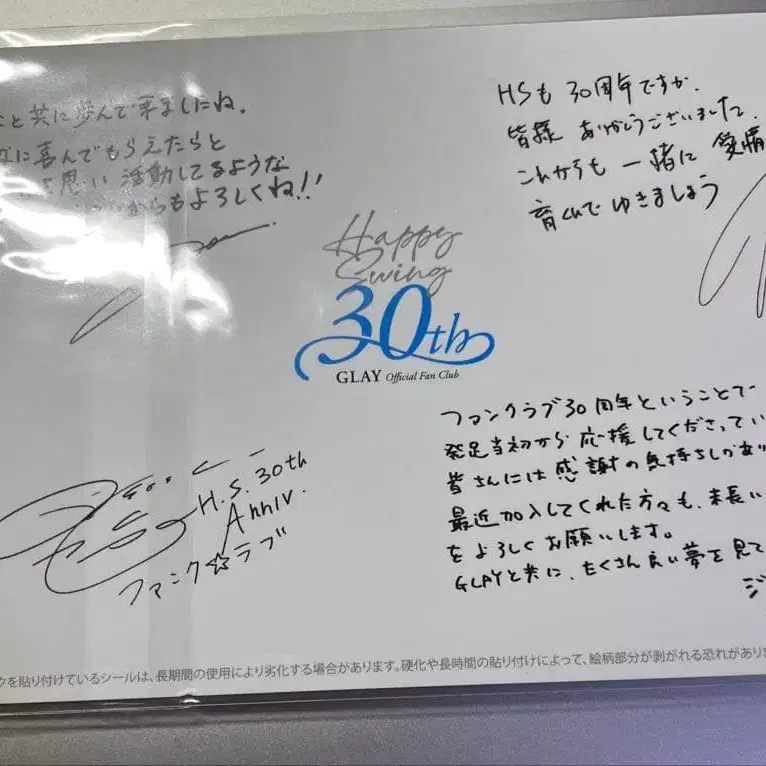 と共に歩んで来ましたね。
に喜んでもらえたらと
思い 活動してるような
からもよろしくね!!
HSも 30周年ですか.
皆様 ありがとうございました.
これからも 一緒に 愛情
育んで ゆきましょう
Happy
Swing
30th
GLAY Official Fan Club
H.S. 30th
Anniv.
ファンク☆ラブ
ファンクラブ30周年ということで
発足当初から応援してくださってい
皆さんには感謝の気持ちしかあり
最近加入してくれた方々も、末長い
をよろしくお願いします。
GLAYと共に、たくさん良い夢を見て
ジ
を貼り付けているシールは、長期間の使用により劣化する場合があります。硬化や長時間の貼り付けによって、絵柄部分が剥がれる恐れがありま